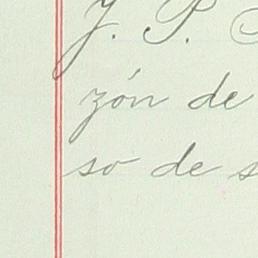 J. P.
zón de
so de s